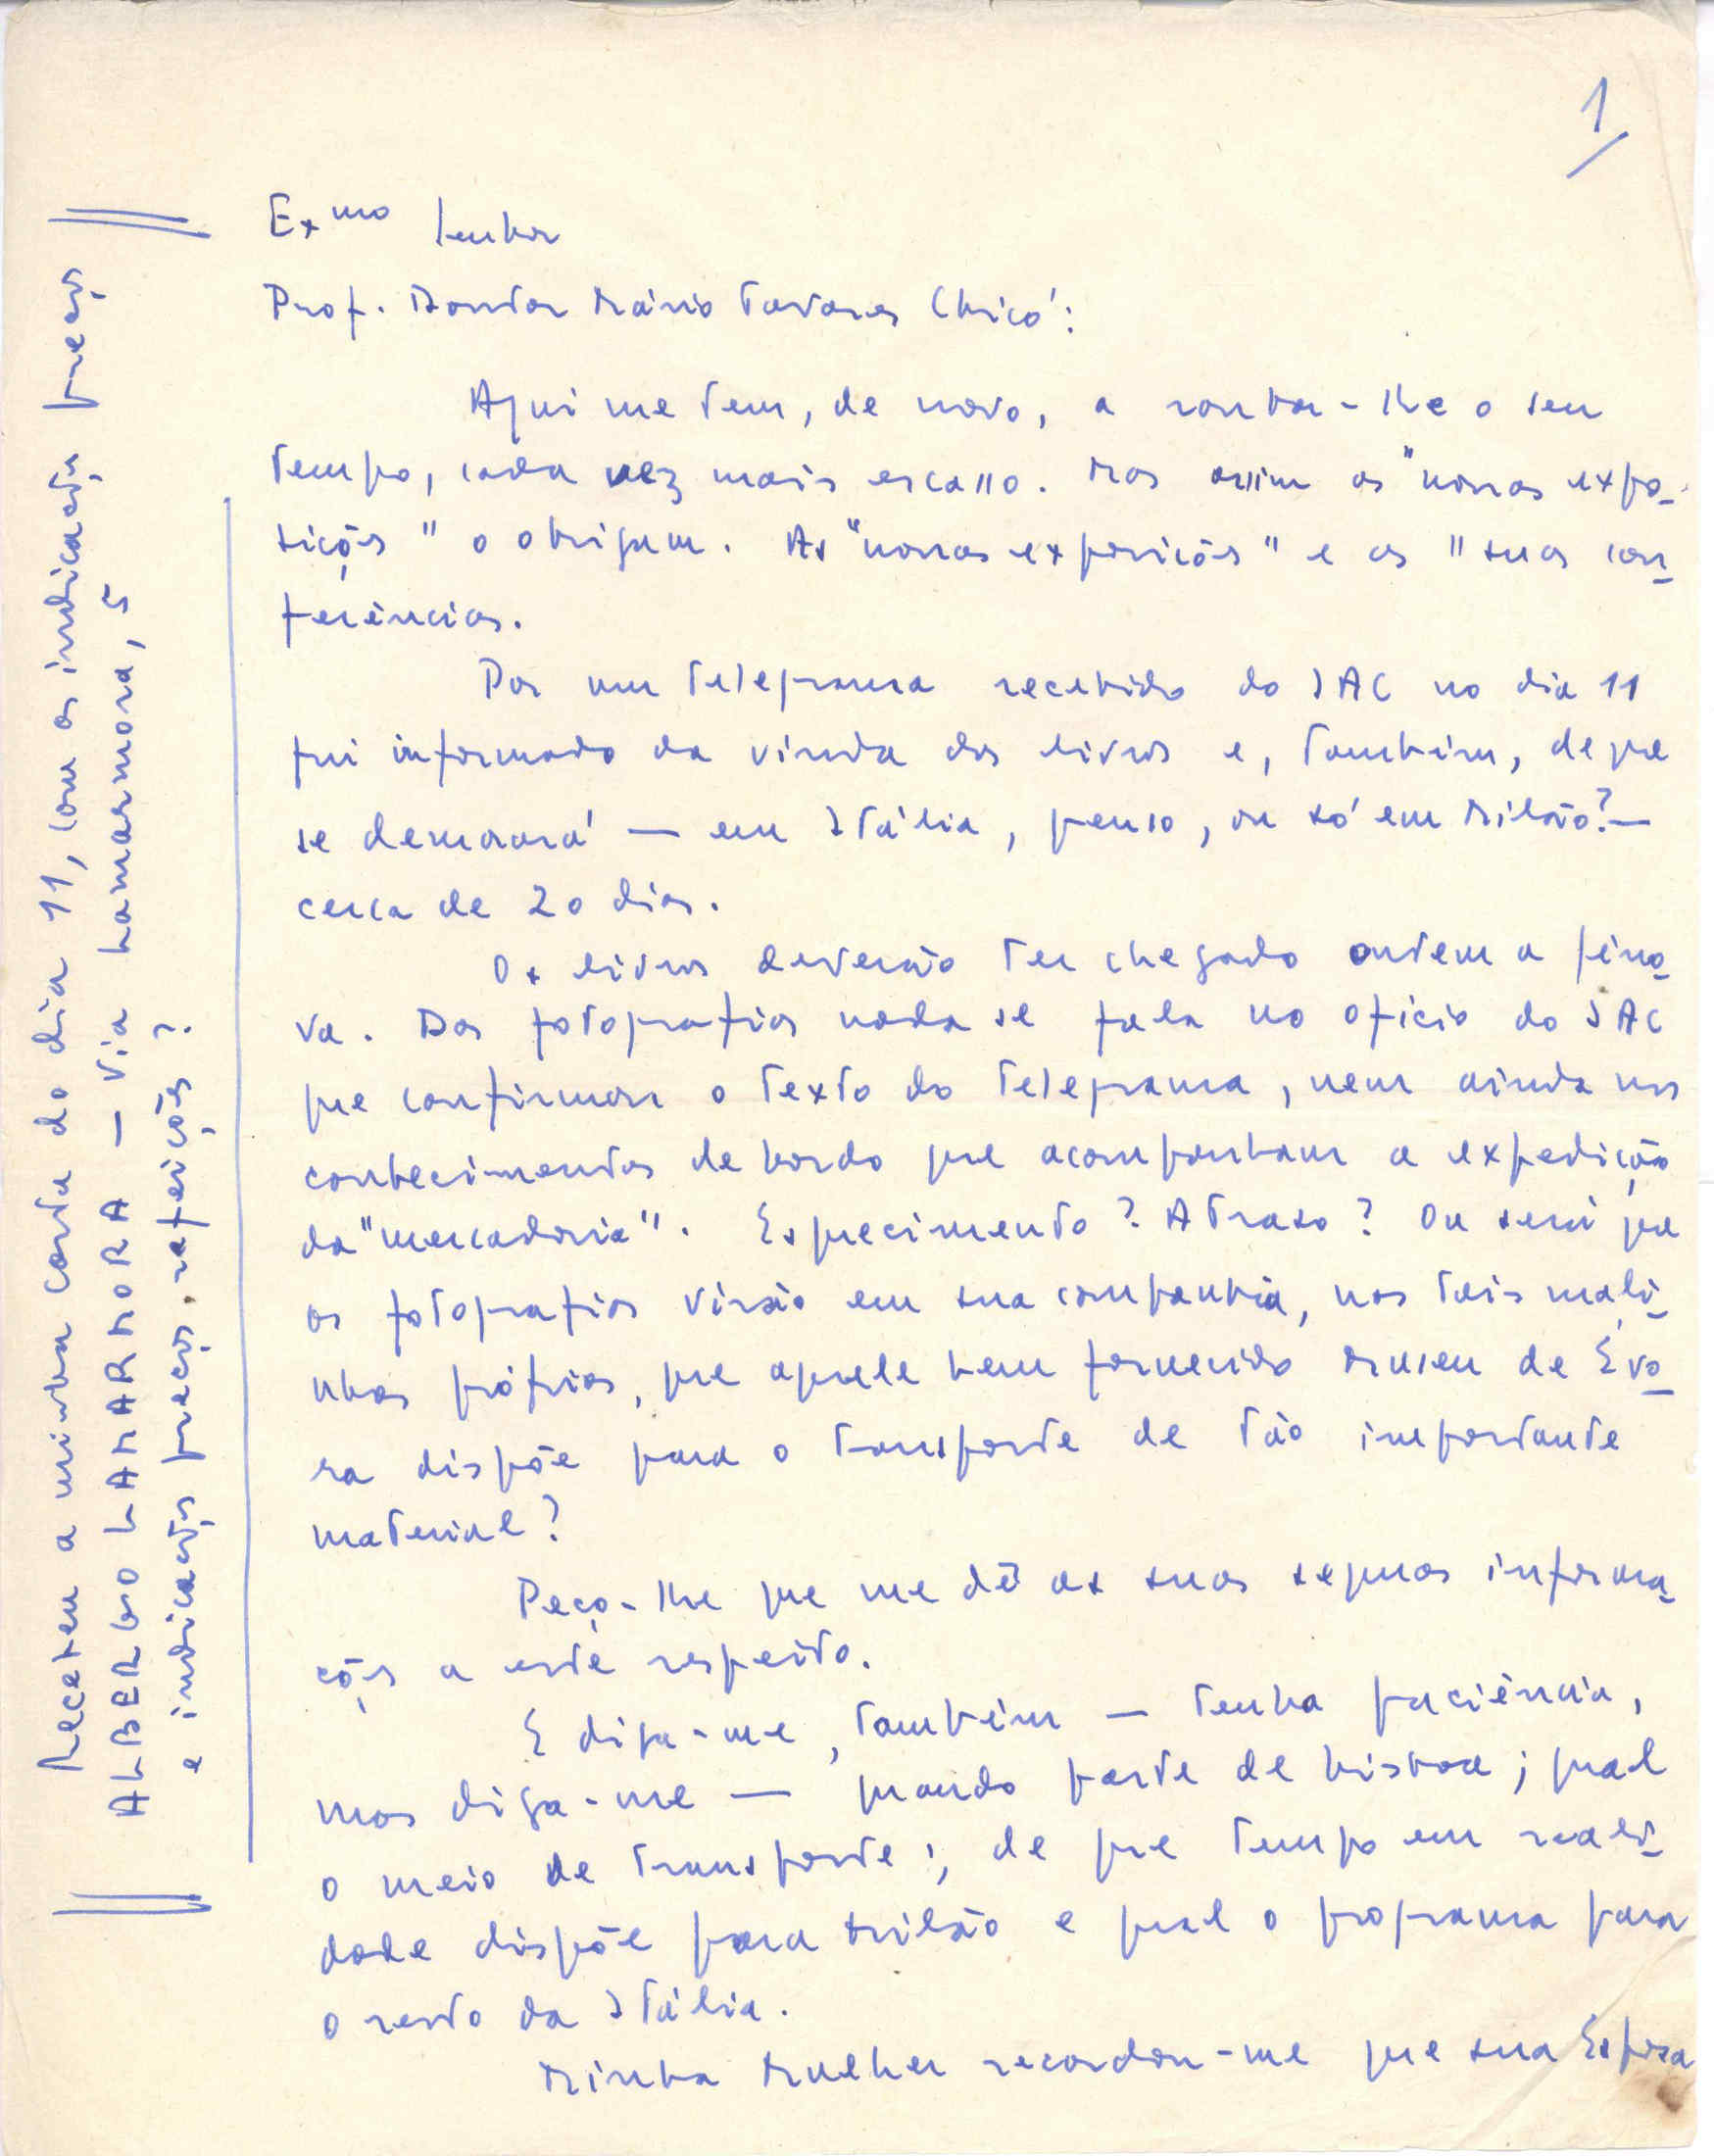 1
Exmo Senhor
Prof. Doutor Mário Tavares Chicó:
Aqui me tem, de novo, a roubar-lhe o seu
tempo, cada vez mais escasso. Mas assim as "nossas expo-
sições" o obrigam. As "nossas exposições" e as "suas con-
ferências.
Por um telegrama recebido do IAC no dia 11
fui informado da vinda dos livros e, também, de que
se demorará — em Itália, penso, ou só em Milão? —
cerca de 20 dias.
Os livros deverão ter chegado ontem a Géno-
va. Das fotografias nada se fala no ofício do IAC
que confirmou o texto do telegrama, nem ainda nos
conhecimentos de bordo que acompanham a expedição
da "mercadoria". Esquecimento? Atraso? Ou será que
as fotografias virão em sua companhia, nas tais mali-
nhas próprias, que aquele bem fornecido Museu de Évo-
ra dispõe para o transporte de tão importante
material?
Peço-lhe que me dê as suas seguras informa-
ções a este respeito.
E diga-me, também — tenha paciência,
mas diga-me — quando parte de Lisboa; qual
o meio de transporte; de que tempo em reali-
dade dispõe para Milão e qual o programa para
o resto da Itália.
Minha Mulher recordou-me que sua Esposa
Recebeu a minha carta do dia 11, com as indicações preços
ALBERGO LAMARMORA — Via Lamarmora, 5
e indicações preços, refeições?